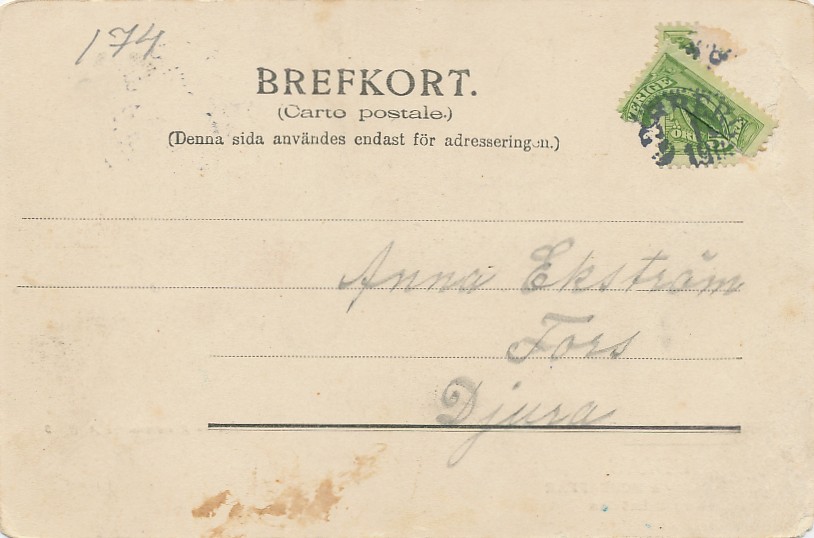 174
BREFKORT.
(Carte postale.)
(Denna sida användes endast för adresseringen.)
SVERIGE
ÖRE
Anna Ekström
Fors
Djura